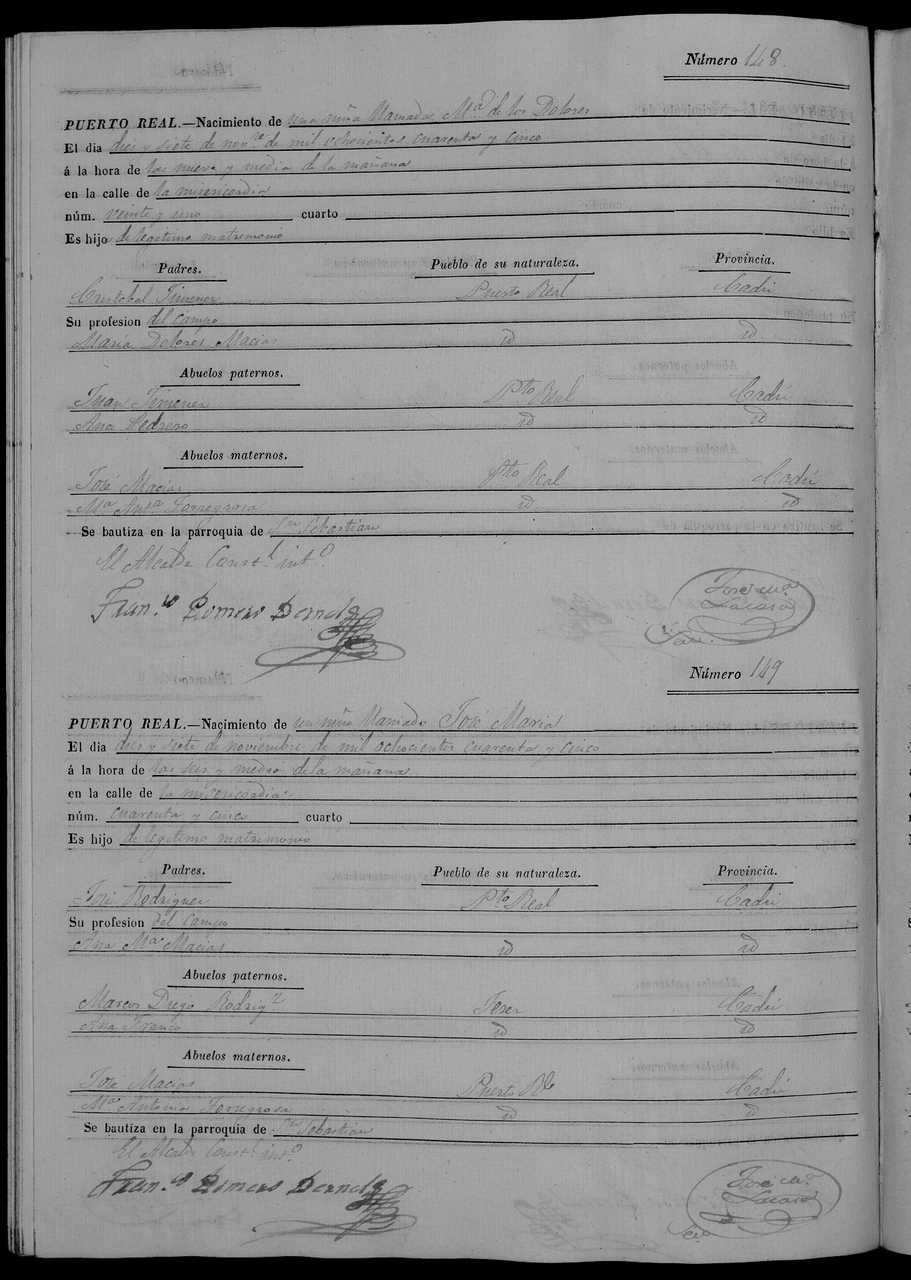 Número 148.
PUERTO REAL.—Nacimiento de una niña llamada Mª de los Dolores
El dia diez y siete de novᵉ de mil ochocientos cuarenta y cinco
á la hora de las nueve y media de la mañana
en la calle de la misericordia
núm. veinte y uno cuarto
Es hijo de legitimo matrimonio
Padres. Pueblo de su naturaleza. Provincia.
Cristobal Jimenez Puerto Real Cadiz
Su profesion del Campo
Maria Dolores Macias id id
Abuelos paternos.
Juan Jimenez Pto Real Cadiz
Ana Pedrero id id
Abuelos maternos.
José Macias Pto Real Cadiz
Mª Antª Torregrosa id id
Se bautiza en la parroquia de Sn Sebastian
El Alcalde Constl intº
Franco Romero
José Mª
Lacasa
Número 149
PUERTO REAL.—Nacimiento de un niño llamado José Maria
El dia diez y siete de noviembre de mil ochocientos cuarenta y cinco
á la hora de las seis y media de la mañana
en la calle de la misericordia
núm. cuarenta y cinco cuarto
Es hijo de legitimo matrimonio
Padres. Pueblo de su naturaleza. Provincia.
José Rodriguez Pto Real Cadiz
Su profesion del Campo
Ana Mª Macias id id
Abuelos paternos.
Marcos Diego Rodrigz Jerez Cadiz
Ana Franco id id
Abuelos maternos.
José Macias Puerto Rl Cadiz
Mª Antonia Torregrosa id id
Se bautiza en la parroquia de Sn Sebastian
El Alcalde Constl intº
Franco Romero
José Mª
Lacasa
Srio